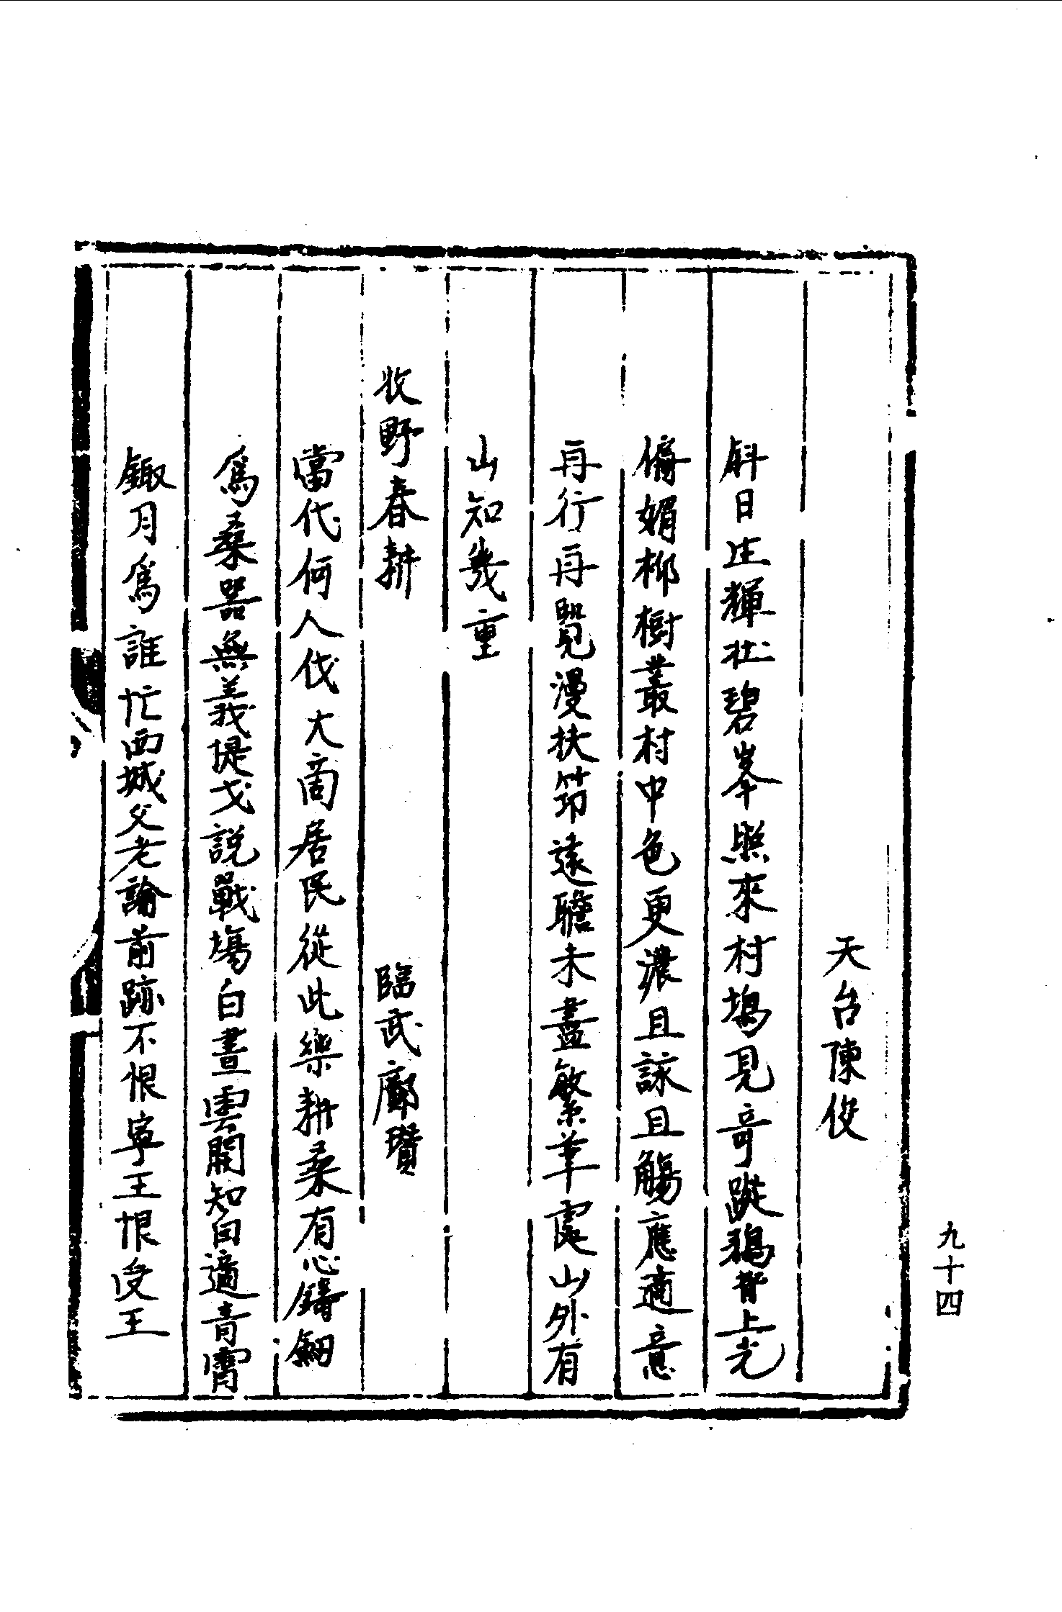 天台陳俊
斜日生輝壯碧峯照來村塢見奇蹤鵶背上光
偏媚柳樹叢村中色更濃且詠且觴應適意
再行再覽漫扶笻遠瞻未盡繁華處山外有
山知幾重
牧野春耕
臨武鄺瓚
當代何人伐大商居民從此樂耕桑有心鑄劒
爲桑器無義提戈說戰塲白晝雲開知自適青霄
鋤月爲誰忙西城父老論前跡不恨寧王恨受王
九十四